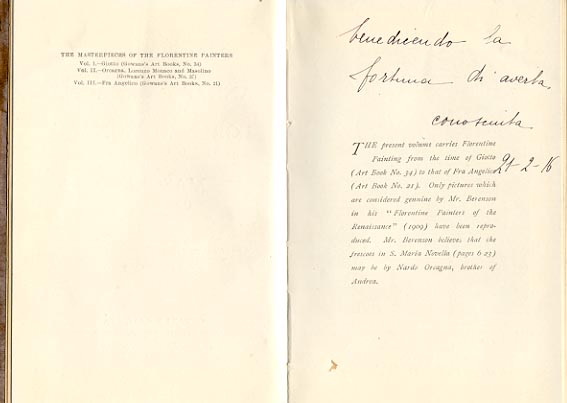 THE MASTERPIECES OF THE FLORENTINE PAINTERS
Vol. I.—Giotto (Gowans's Art Books, No. 34)
Vol. II.—Orcagna, Lorenzo Monaco and Masolino
(Gowans's Art Books, No. 37)
Vol. III.—Fra Angelico (Gowans's Art Books, No. 21)
benedicendo la
fortuna di averla
conosciuta
THE present volume carries Florentine
Painting from the time of Giotto
(Art Book No. 34) to that of Fra Angelico
(Art Book No. 21). Only pictures which
are considered genuine by Mr. Berenson
in his "Florentine Painters of the
Renaissance" (1909) have been repro-
duced. Mr. Berenson believes that the
frescoes in S. Maria Novella (pages 6-23)
may be by Nardo Orcagna, brother of
Andrea.
2-16